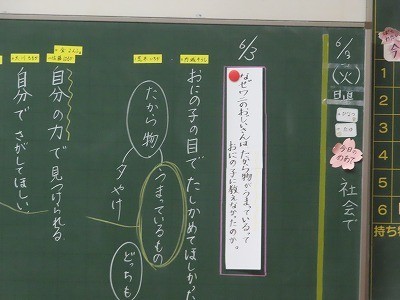 6/3
(火)
日直
社会で
今日のめあて
6/3
なぜワニのおじいさんは、たから物がうまっている。って
おにの子に教えなかったのか。
おにの子の目でたしかめてほしかった
たから物
うまっているもの
夕やけ
どっちも
自分の力で見つけられる
自分でさがしてほしい
1
2
3
4
5
6
持ち物